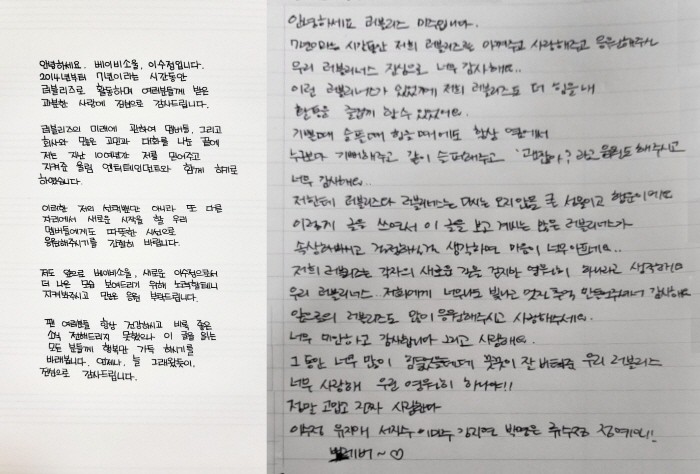 안녕하세요. 베이비소울, 이수정입니다.
2014년부터 7년이라는 시간동안
러블리즈로 활동하며 여러분들께 받은
과분한 사랑에 진심으로 감사드립니다.
러블리즈의 미래에 관하여 멤버들, 그리고
회사와 많은 고민과 대화를 나눈 끝에
저는 지난 10여년간 저를 믿어주고
지켜준 울림 엔터테인먼트와 함께 하기로
하였습니다.
이러한 저의 선택뿐만 아니라 또 다른
자리에서 새로운 시작을 할 우리
멤버들에게도 따뜻한 시선으로
응원해주시기를 간절히 바랍니다.
저도 앞으로 베이비소울, 새로운 이수정으로서
더 나은 모습 보여드리기 위해 노력할테니
지켜봐주시고 많은 응원 부탁드립니다.
팬 여러분들 항상 건강하시고 비록 좋은
소식 전해드리지 못했으나 이 글을 읽는
모든 분들께 행복만 가득 하시기를
바래봅니다. 언제나, 늘 그래왔듯이,
진심으로 감사드립니다.
안녕하세요 러블리즈 미주입니다.
시간동안 저희 러블리즈를 아껴주고 사랑해주고 응원해주신
우리 러블리너스 진심으로 너무 감사해요..
이런 러블리너스가 있었기에 저희 러블리즈도 더 힘을내
활동을 즐겁게 할 수 있었어요.
기쁠때 슬플때 힘들 때에도 항상 옆에서
누구보다 기뻐해주고 같이 슬퍼해주고 '괜찮아?'라고 응원도 해주시고
너무 감사해요..
저한테 러블리즈와 러블리너스는 다시는 오지않을 큰 선물이고 행운이에요
이렇게 글을 쓰면서 이 글을 보고 계시는 많은 러블리너스가
속상해하시고 걱정하실거 생각하면 마음이 너무 아프네요..
저희 러블리즈는 각자의 새로운 길을 걷지만 영원히 하나라고 생각하고
우리 러블리너스.. 저희에게 너무나도 빛나고 멋진 추억 만들어주셔서 감사해요
앞으로의 러블리즈도 많이 응원해주시고 사랑해주세요.
너무 미안하고 감사합니다 그리고 사랑해요.
그동안 너무 많이 힘들었을텐데 꿋꿋이 잘 버텨준 우리 러블리즈
너무 사랑해 우린 영원히 하나야!!
정말 고맙고 진짜 사랑한다
이수정 유지애 서지수 이미주 김지연 박명은 류수정 정예인!!
~♡